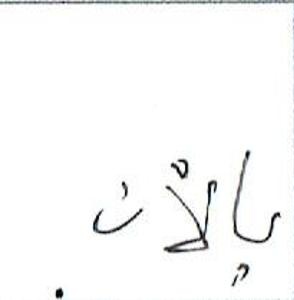 بالآن